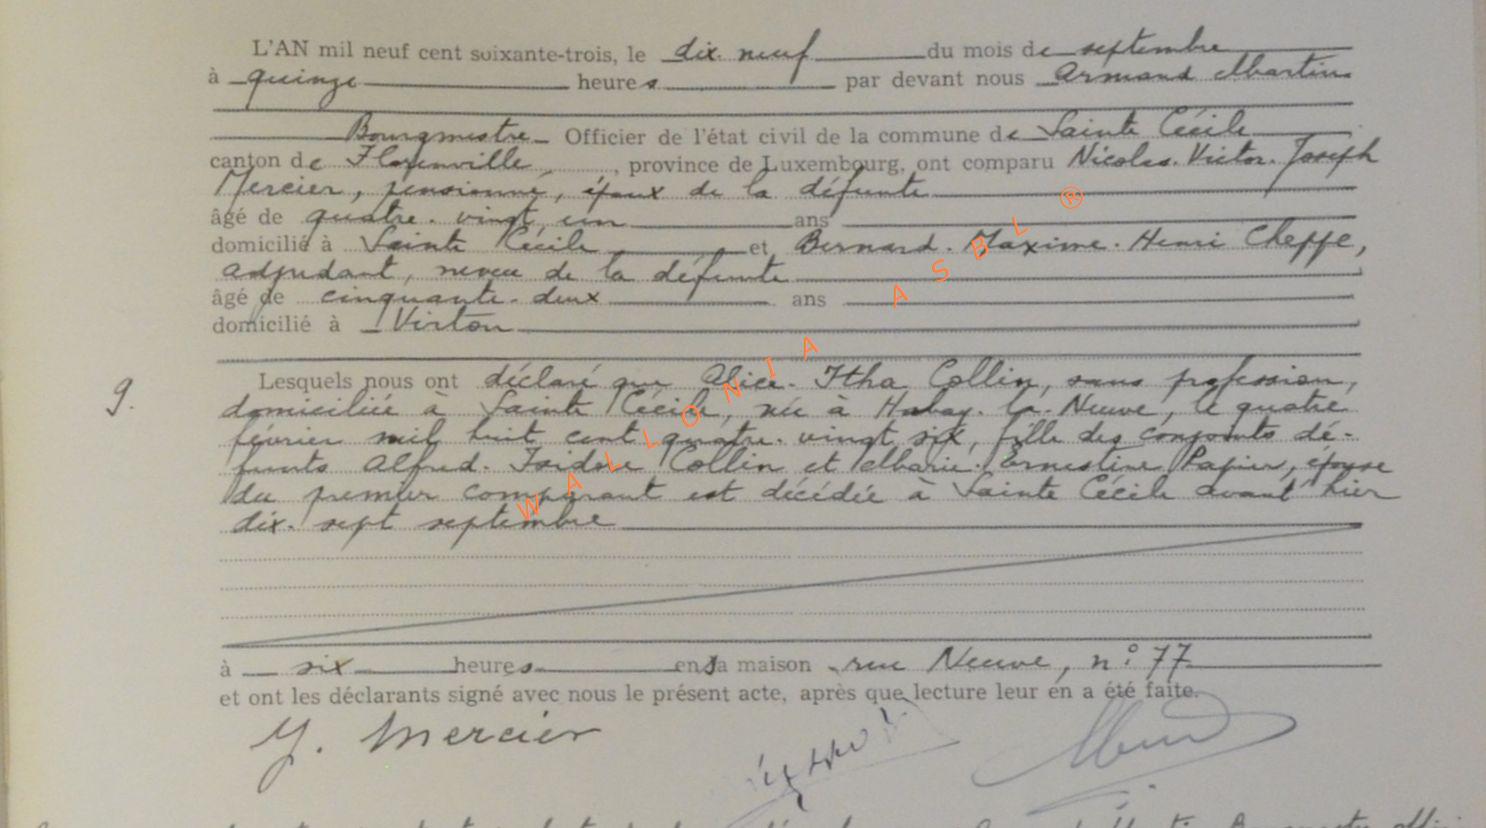 L'AN mil neuf cent soixante-trois, le dix-neuf du mois de septembre
à quinze heures par devant nous Armand Martin
Bourgmestre Officier de l'état civil de la commune de Sainte Cécile
canton de Florenville, province de Luxembourg, ont comparu Nicolas-Victor-Joseph
Mercier, pensionné, époux de la défunte
âgé de quatre-vingt un ans
domicilié à Sainte Cécile et Bernard-Maxime-Henri Cheppe,
adjudant, neveu de la défunte
âgé de cinquante-deux ans
domicilié à Virton
9. Lesquels nous ont déclaré que Alice-Itha Collin, sans profession,
domiciliée à Sainte Cécile, née à Habay-la-Neuve, le quatre
février mil huit cent quatre-vingt six, fille des conjoints dé-
funts Alfred-Isidore Collin et Marie-Ernestine Papier, épouse
du premier comparant est décédée à Sainte Cécile avant hier
dix-sept septembre
à six heures en sa maison rue Neuve, n° 77
et ont les déclarants signé avec nous le présent acte, après que lecture leur en a été faite.
Mercier
WALLONIA ASBL ®